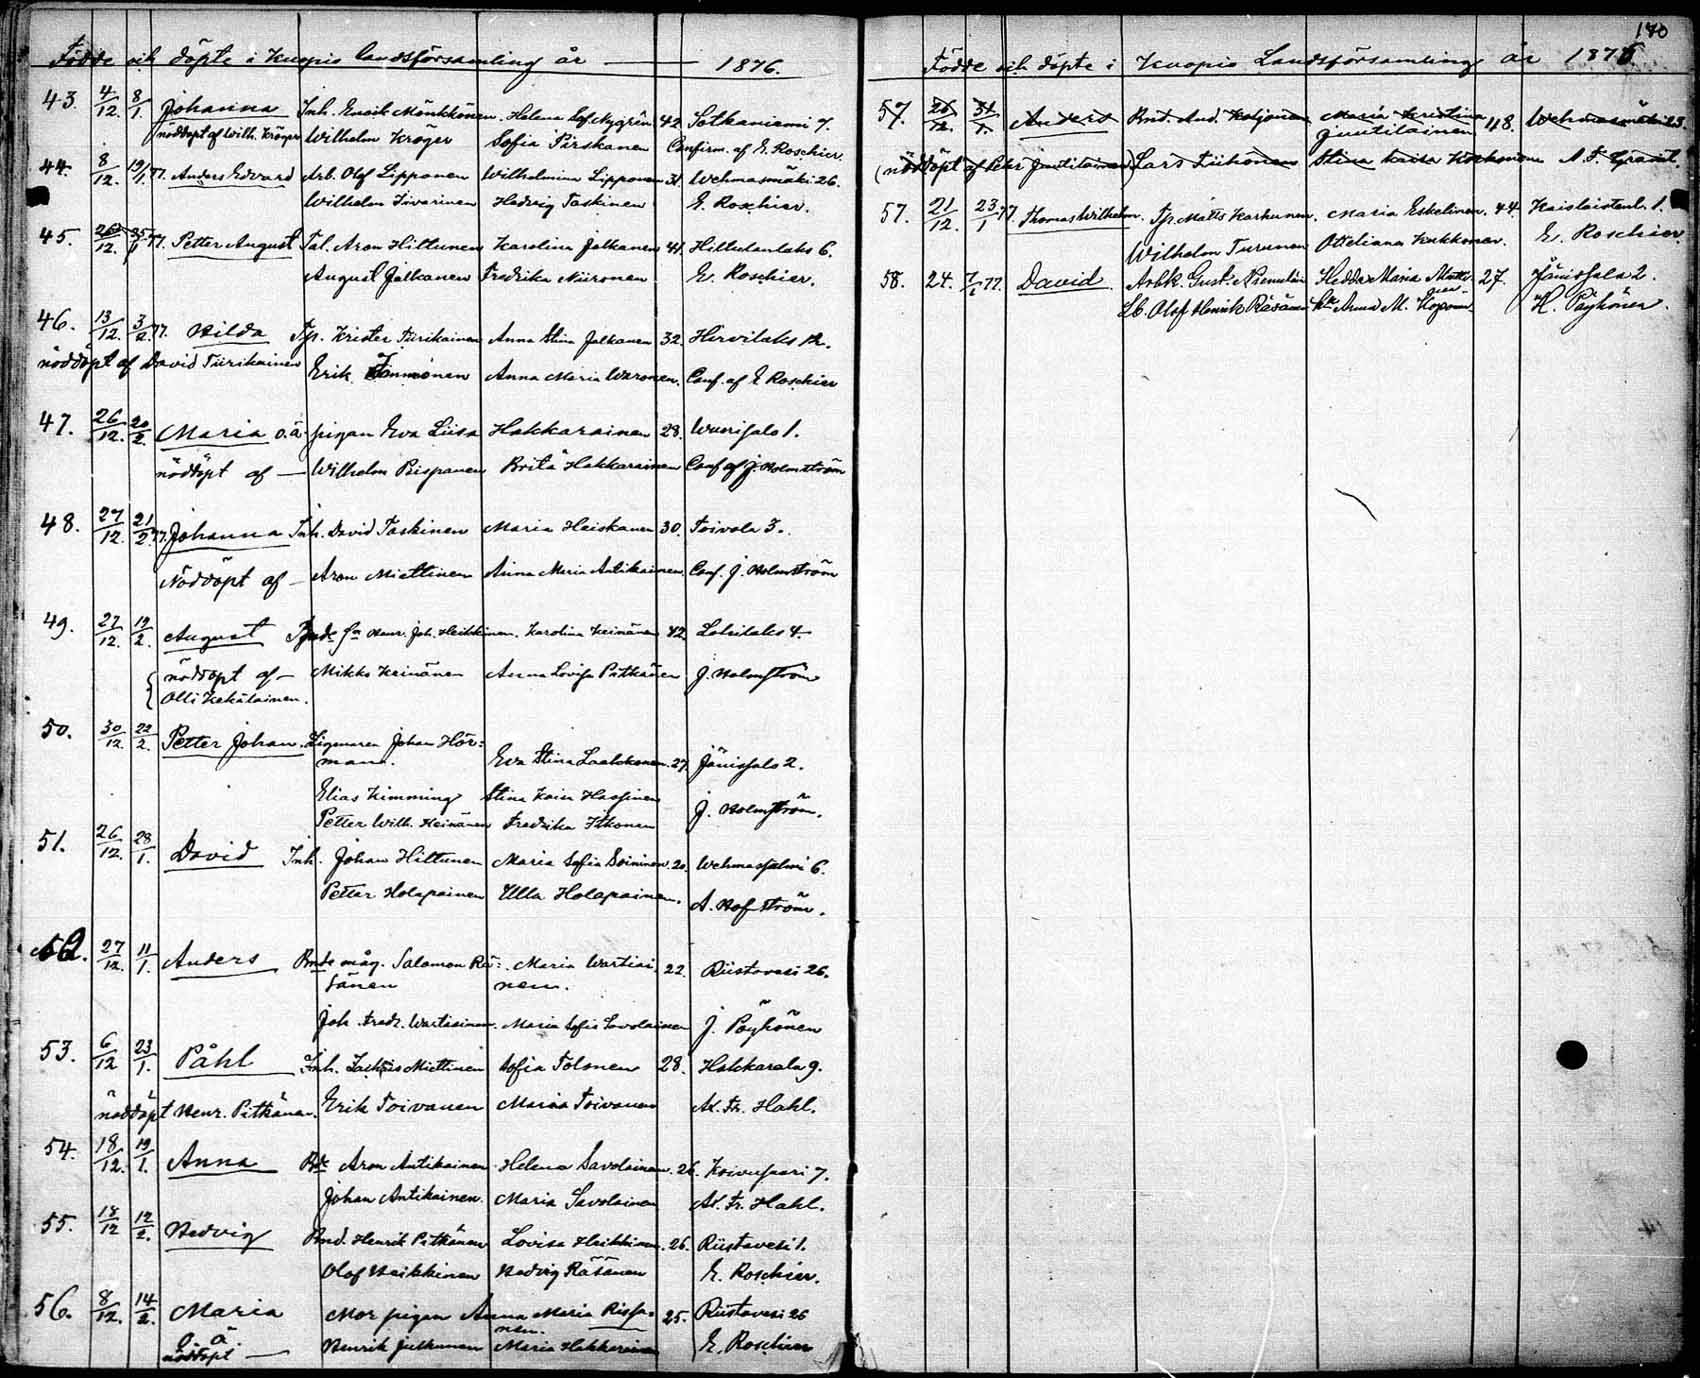 Födde och döpte i Kuopio landsförsamling år 1876.
43. 4/12. 8/1. Johanna Inh. Enrik Mönkkönen. Helena Sof. Nygrén 42. Sotkaniemi 7.
nöddöpt af Wilh. Kröger Wilhelm Kröger Sofia Pirskanen Confirm. af E. Roschier.
44. 8/12. 19/1.77. Anders Edvard Arb. Olof Lipponen Wilhelmina Lipponen 31. Wehmasmäki 26.
Wilhelm Iivarinen Hedvig Taskinen E. Roschier.
45. 26/12. 25/1 77. Petter August Tal. Aron Hiltunen Karolina Jalkanen 41. Hiltulanlaks 6.
August Jalkanen Fredrika Niironen E. Roschier.
46. 13/12. 3/2.77. Hilda Tp. Krister Tiirikainen Anna Stina Jalkanen 32. Hirvilaks 12.
nöddöpt af David Tiirikainen Erik Immonen Anna Maria Waronen. Conf. af E Roschier
47. 26/12. 20/2. Maria o.ä. pigan Eva Liisa Hakkarainen 28. Wuorisalo 1.
nöddöpt af — Wilhelm Piispanen Brita Hakkarainen Conf af J. Holmström
48. 27/12. 21/2.77. Johanna Inh. David Taskinen Maria Heiskanen 30. Toivola 3.
Nöddöpt af — Aron Miettinen Anna Maria Antikainen. Conf. J. Holmström
49. 27/12. 19/2. August Bnde sn Henr. Joh. Heikkinen. Karolina Keinänen 42. Lohilaks 4.
nöddöpt af — Mikko Keinänen Anna Lovisa Pitkänen J. Holmström
Olli Kekäläinen.
50. 30/12. 22/2. Petter Johan. Ligenaren Johan Hör=
mann. Eva Stina Laakkonen. 27. Jänissalo 2.
Elias Kimming Stina Kaisa Hassinen J. Holmström.
Petter Wilh. Heinänen Fredrika Itkonen
51. 26/12. 28/1. David Inh. Johan Hiltunen Maria Sofia Soininen. 20. Wehmassalmi 6.
Petter Holopainen Ulla Holapainen. A. Hofström.
52. 27/12. 11/1. Anders Bnde måg. Salamon Rä= Maria Wartiai 22. Riistavesi 26.
sänen nen.
Joh. Fredr. Wartiainen. Maria Sofia Savolainen J. Pöyhönen
53. 6/12 23/1. Påhl Inh. Zachris Miettinen Sofia Tolonen 28. Hakkarala 9.
nöddöpt Henr. Pitkänen. Erik Toivanen Maria Toivanen Ax. Fr. Hahl.
54. 18/12. 19/1. Anna Bde Aron Antikainen Helena Savolainen. 26. Koivusaari 7.
Johan Antikainen. Maria Savolainen Ax. Fr. Hahl.
55. 18/12 12/2. Hedvig Bnd. Henrik Pitkänen Lovisa Heikkinen. 26. Riistavesi 1.
Olof Heikkinen Hedvig Räsänen E. Roschier.
56. 8/12. 14/2. Maria Mor pigan Anna Maria Rissa= 25. Riistavesi 26
o. ä. nen.
nöddöpt — Henrik Jutkunen Maria Hakkarainen E. Roschier
180
Födde och döpte i Kuopio Landsförsamling år 1876
57. 26/12. 31/1. Anders Bnd. And. Koljonen Maria Kristina
Juutilainen 48. Wehmasmäki 23.
(nöddöpt af Petr Juutilainen) Lars Tiihonen Stina Kaisa Korhonen A. F. Granit.
57. 21/12. 23/1 77. Thomas Wilhelm. Tp. Matts Karhunen. Maria Eskelinen. 44. Kaislaistenl. 1.
Wilhelm Turunen Otteliana Kukkonen. E. Roschier.
58. 24. 7/1 77. David Arbk. Gust. Niemeläi Hedda Maria 27. Jänissalo 2.
Lb. Olof Henrik Räsänen Anna M. Koponen. H. Pöyhönen.